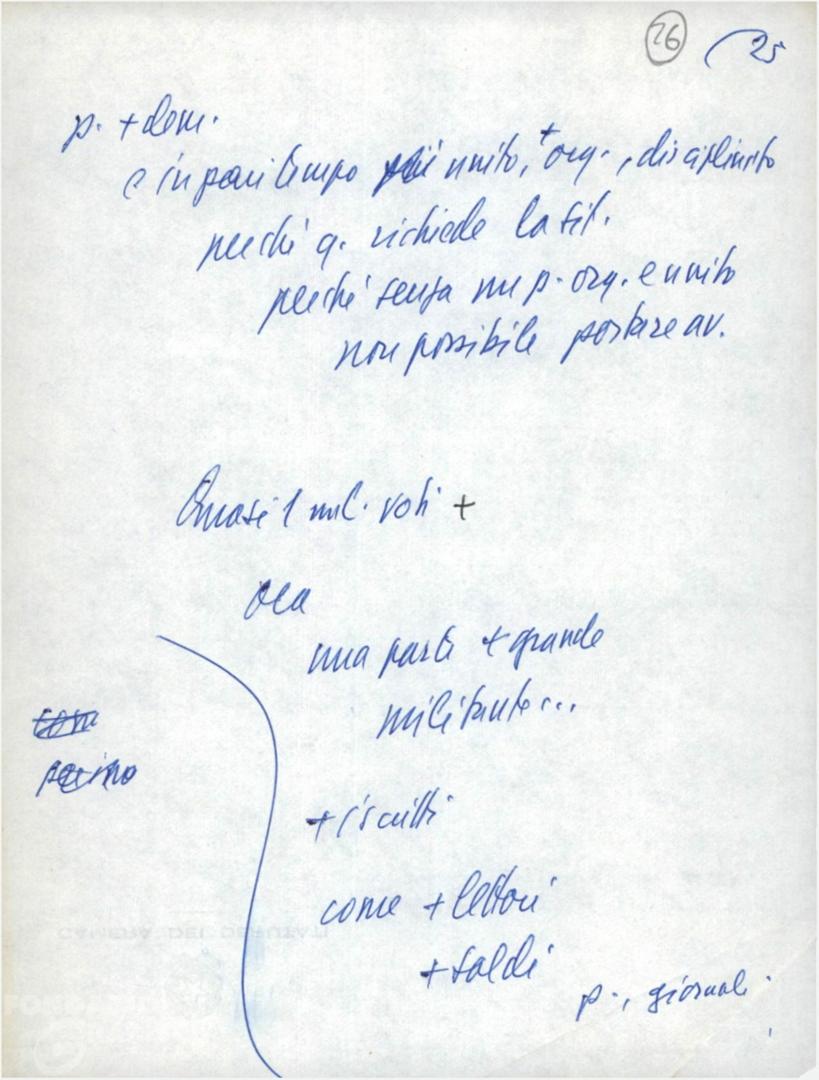 26 25
p. + dem.
e in pari tempo più unito, + org., disciplinato
perché q. richiede la sit.
perché senza un p. org. e unito
non possibile portare av.
Quasi 1 mil. voti +
ora
una parte + grande
militante...
+ iscritti
come + lettori
+ soldi
p., giornale
CAMERA DEI DEPUTATI